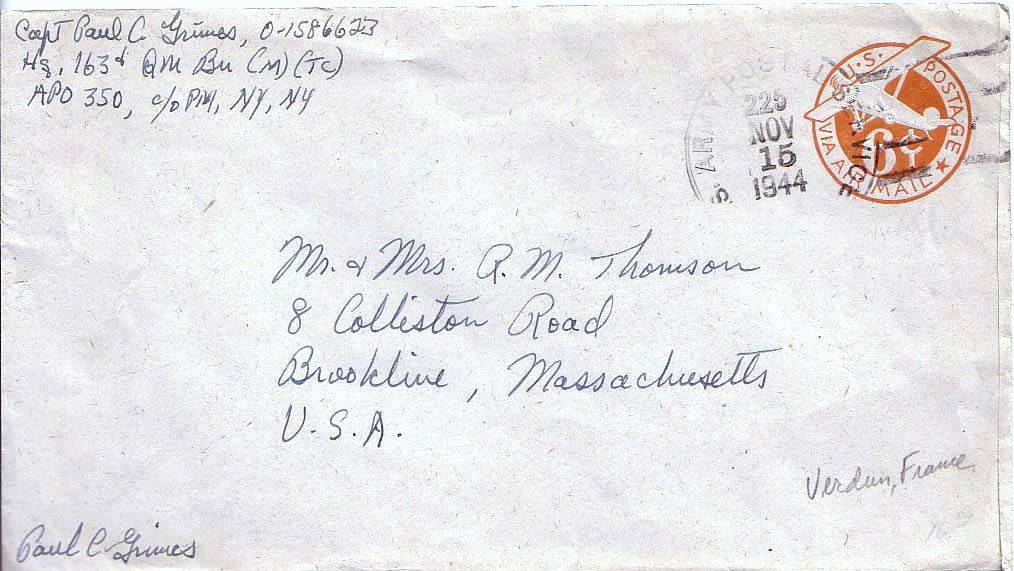 Capt Paul C. Grimes, O-1586623
Hq. 163d QM Bn (M) (TC)
APO 350, c/o PM, NY, NY
U.S. POSTAGE
VIA AIR MAIL
6¢
U.S. ARMY POSTAL SERVICE
225
NOV
15
1944
Mr. & Mrs. R. M. Thomson
8 Colliston Road
Brookline, Massachusetts
U.S.A.
Verdun, France
Paul C Grimes